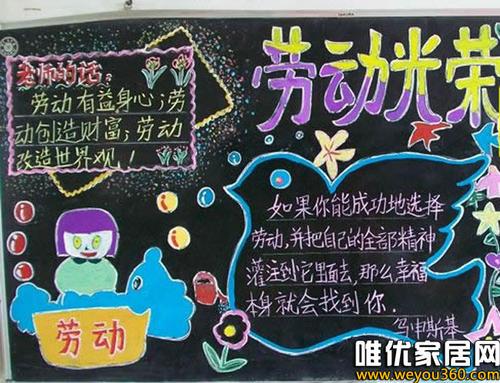 劳动光荣
老师的话:
劳动有益身心;劳
动创造财富;劳动
改造世界观!
如果你能成功地选择
劳动,并把自己的全部精神
灌注到它里面去,那么幸福
本身就会找到你.
马申斯基
劳动
唯优家居网
www.weyou360.com